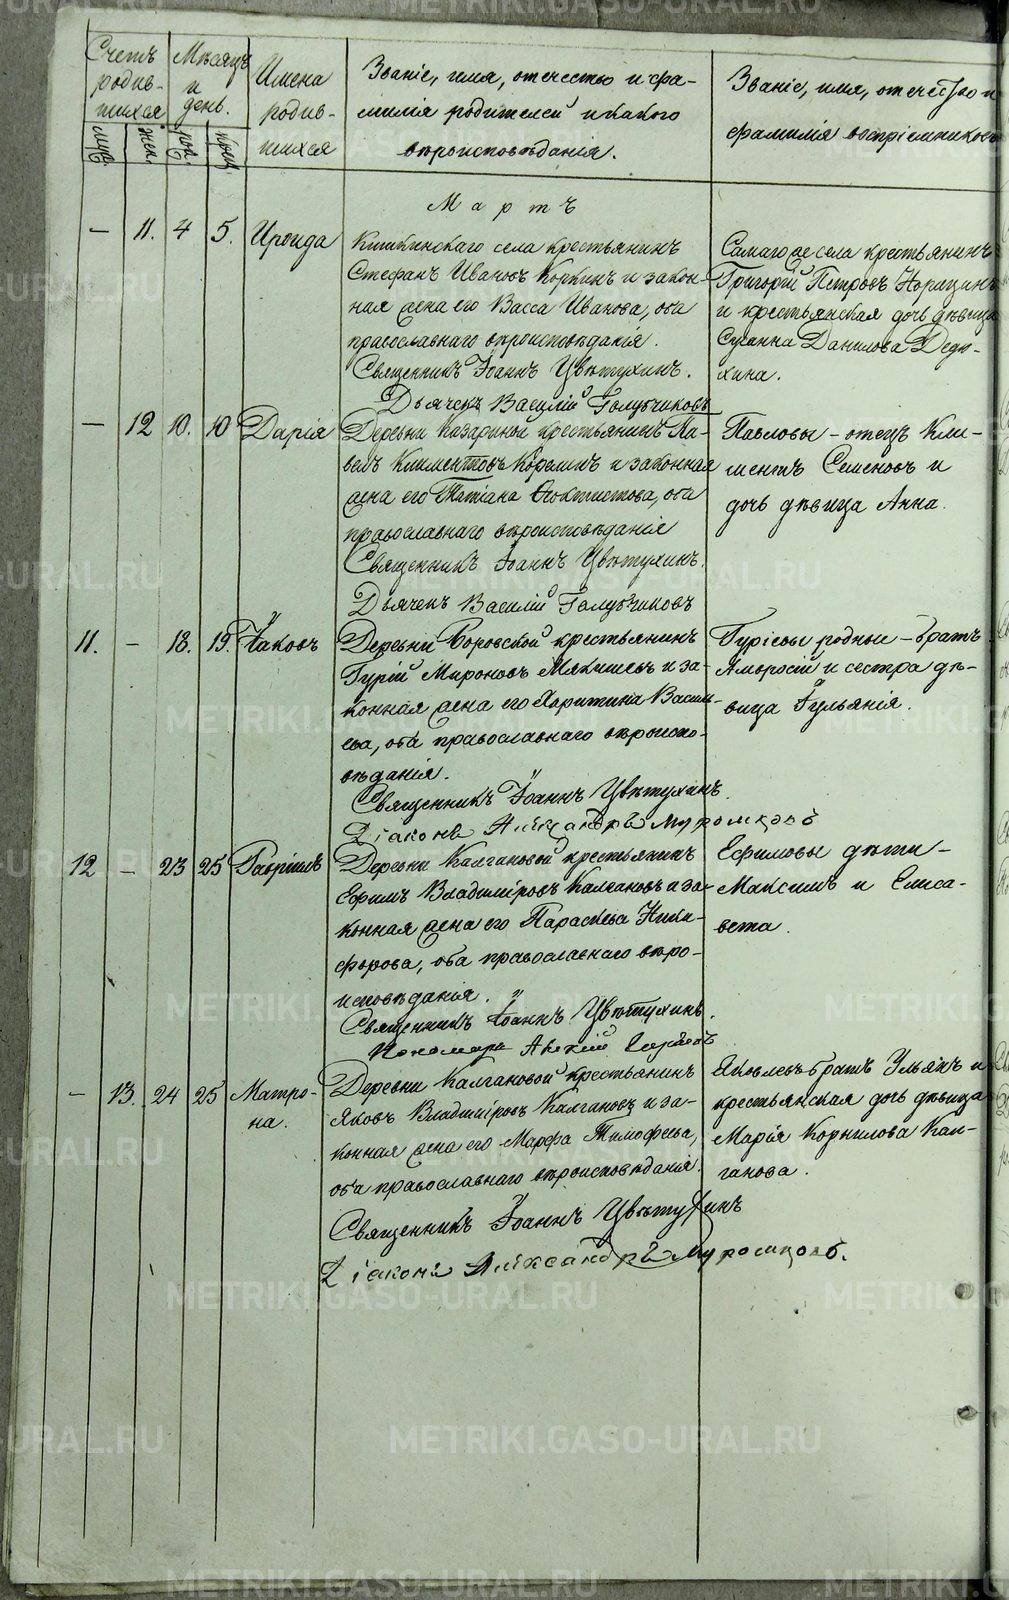 Счетъ родив-
шихся
Мѣсяцъ
и
день.
Имена
родив-
шихся
Званіе, имя, отчество и фа-
милія родителей и какого
вѣроисповѣданія.
Званіе, имя, отчество и
фамилія воспріемниковъ
муж.
жен.
рож.
крещ.
Мартъ
— 11. 4 5. Ироида
Кишкинскаго села крестьянинъ
Стефанъ Ивановъ Коркинъ и закон-
ная жена его Васса Иванова, оба
православнаго вѣроисповѣданія.
Священникъ Іоаннъ Цвѣтухинъ.
Дьячекъ Василій Голубчиковъ
Самаго же села крестьянинъ
Григорій Петровъ
и крестьянская дочь дѣвица
Сусанна Данилова Дедю-
хина.
— 12 10. 10 Дарія
Деревни Казариной крестьянинъ Па-
велъ Климентовъ Корелинъ и законная
жена его Татіана Ѳеоктистова, оба
православнаго вѣроисповѣданія
Священникъ Іоаннъ Цвѣтухинъ.
Дьячекъ Василій Голубчиковъ
Павловы – отецъ Кли-
ментъ Семеновъ и
дочь дѣвица Анна.
11. — 18. 19. Іаковъ
Деревни Боровской крестьянинъ
Гурій Мироновъ Мякишевъ и за-
конная жена его Харитина Василь-
ева, оба православнаго вѣроиспо-
вѣданія.
Священникъ Іоаннъ Цвѣтухинъ
Діаконъ Александръ Муромцовъ
Гурієвы родные – братъ
Амвросій и сестра дѣ-
вица Іульянія.
12 — 23 25 Гавріилъ
Деревни Калгановой крестьянинъ
Ефимъ Владиміровъ Калгановъ и за-
конная жена его Параскева Ники-
форова, оба православнаго вѣро-
исповѣданія.
Священникъ Іоаннъ Цвѣтухинъ.
Пономарь
Ефимовы дѣти –
Максимъ и Елиса-
вета.
— 13. 24 25 Матро-
на.
Деревни Калгановой крестьянинъ
Яковъ Владиміровъ Калгановъ и за-
конная жена его Марфа Тимофеева,
оба православнаго вѣроисповѣданія.
Священникъ Іоаннъ Цвѣтухинъ
Діаконъ Александръ Муромцовъ.
Яковлевъ братъ Ульянъ и
крестьянская дочь дѣвица
Марія Корнилова Кал-
ганова.
METRIKI.GASO-URAL.RU